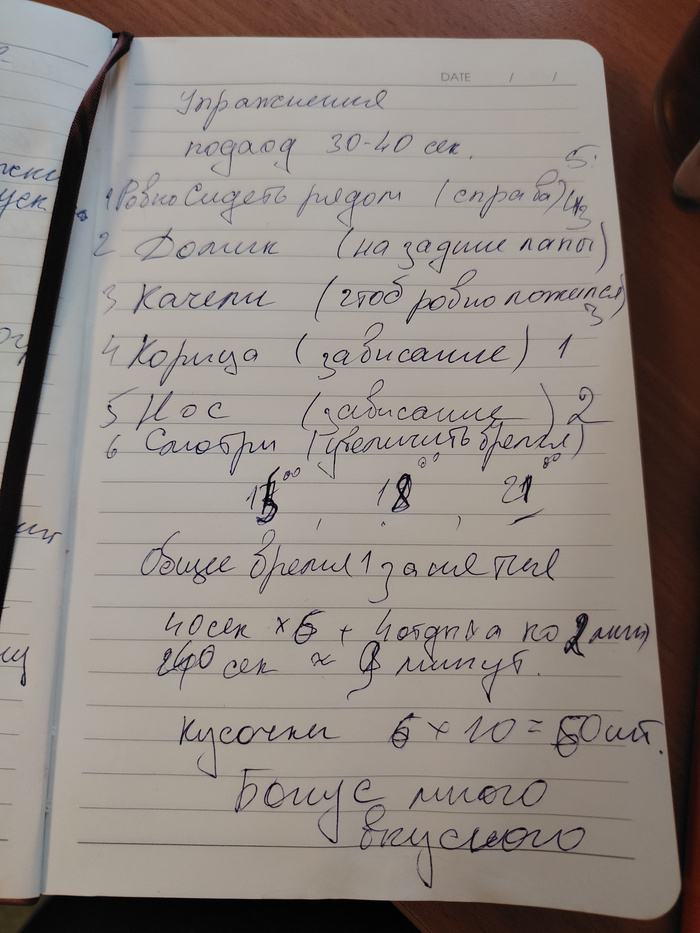 DATE / /
Упражнения
подход 30-40 сек.
5.
1 Ровно Сидеть рядом (справа)
2 Домик (на задние лапы)
3 Качели (чтоб ровно ложился)
3
4 Корица (зависание) 1
5 Нос (зависание) 2
6 Смотри (увеличить время)
15⁰⁰, 18⁰⁰, 21⁰⁰
Общее время 1 занятия
40 сек × 6 + 4 отдыха по 2 мин
240 сек ≈ минут.
Кусочки 6 × 10 = 60 шт.
Бонус много
вкусного